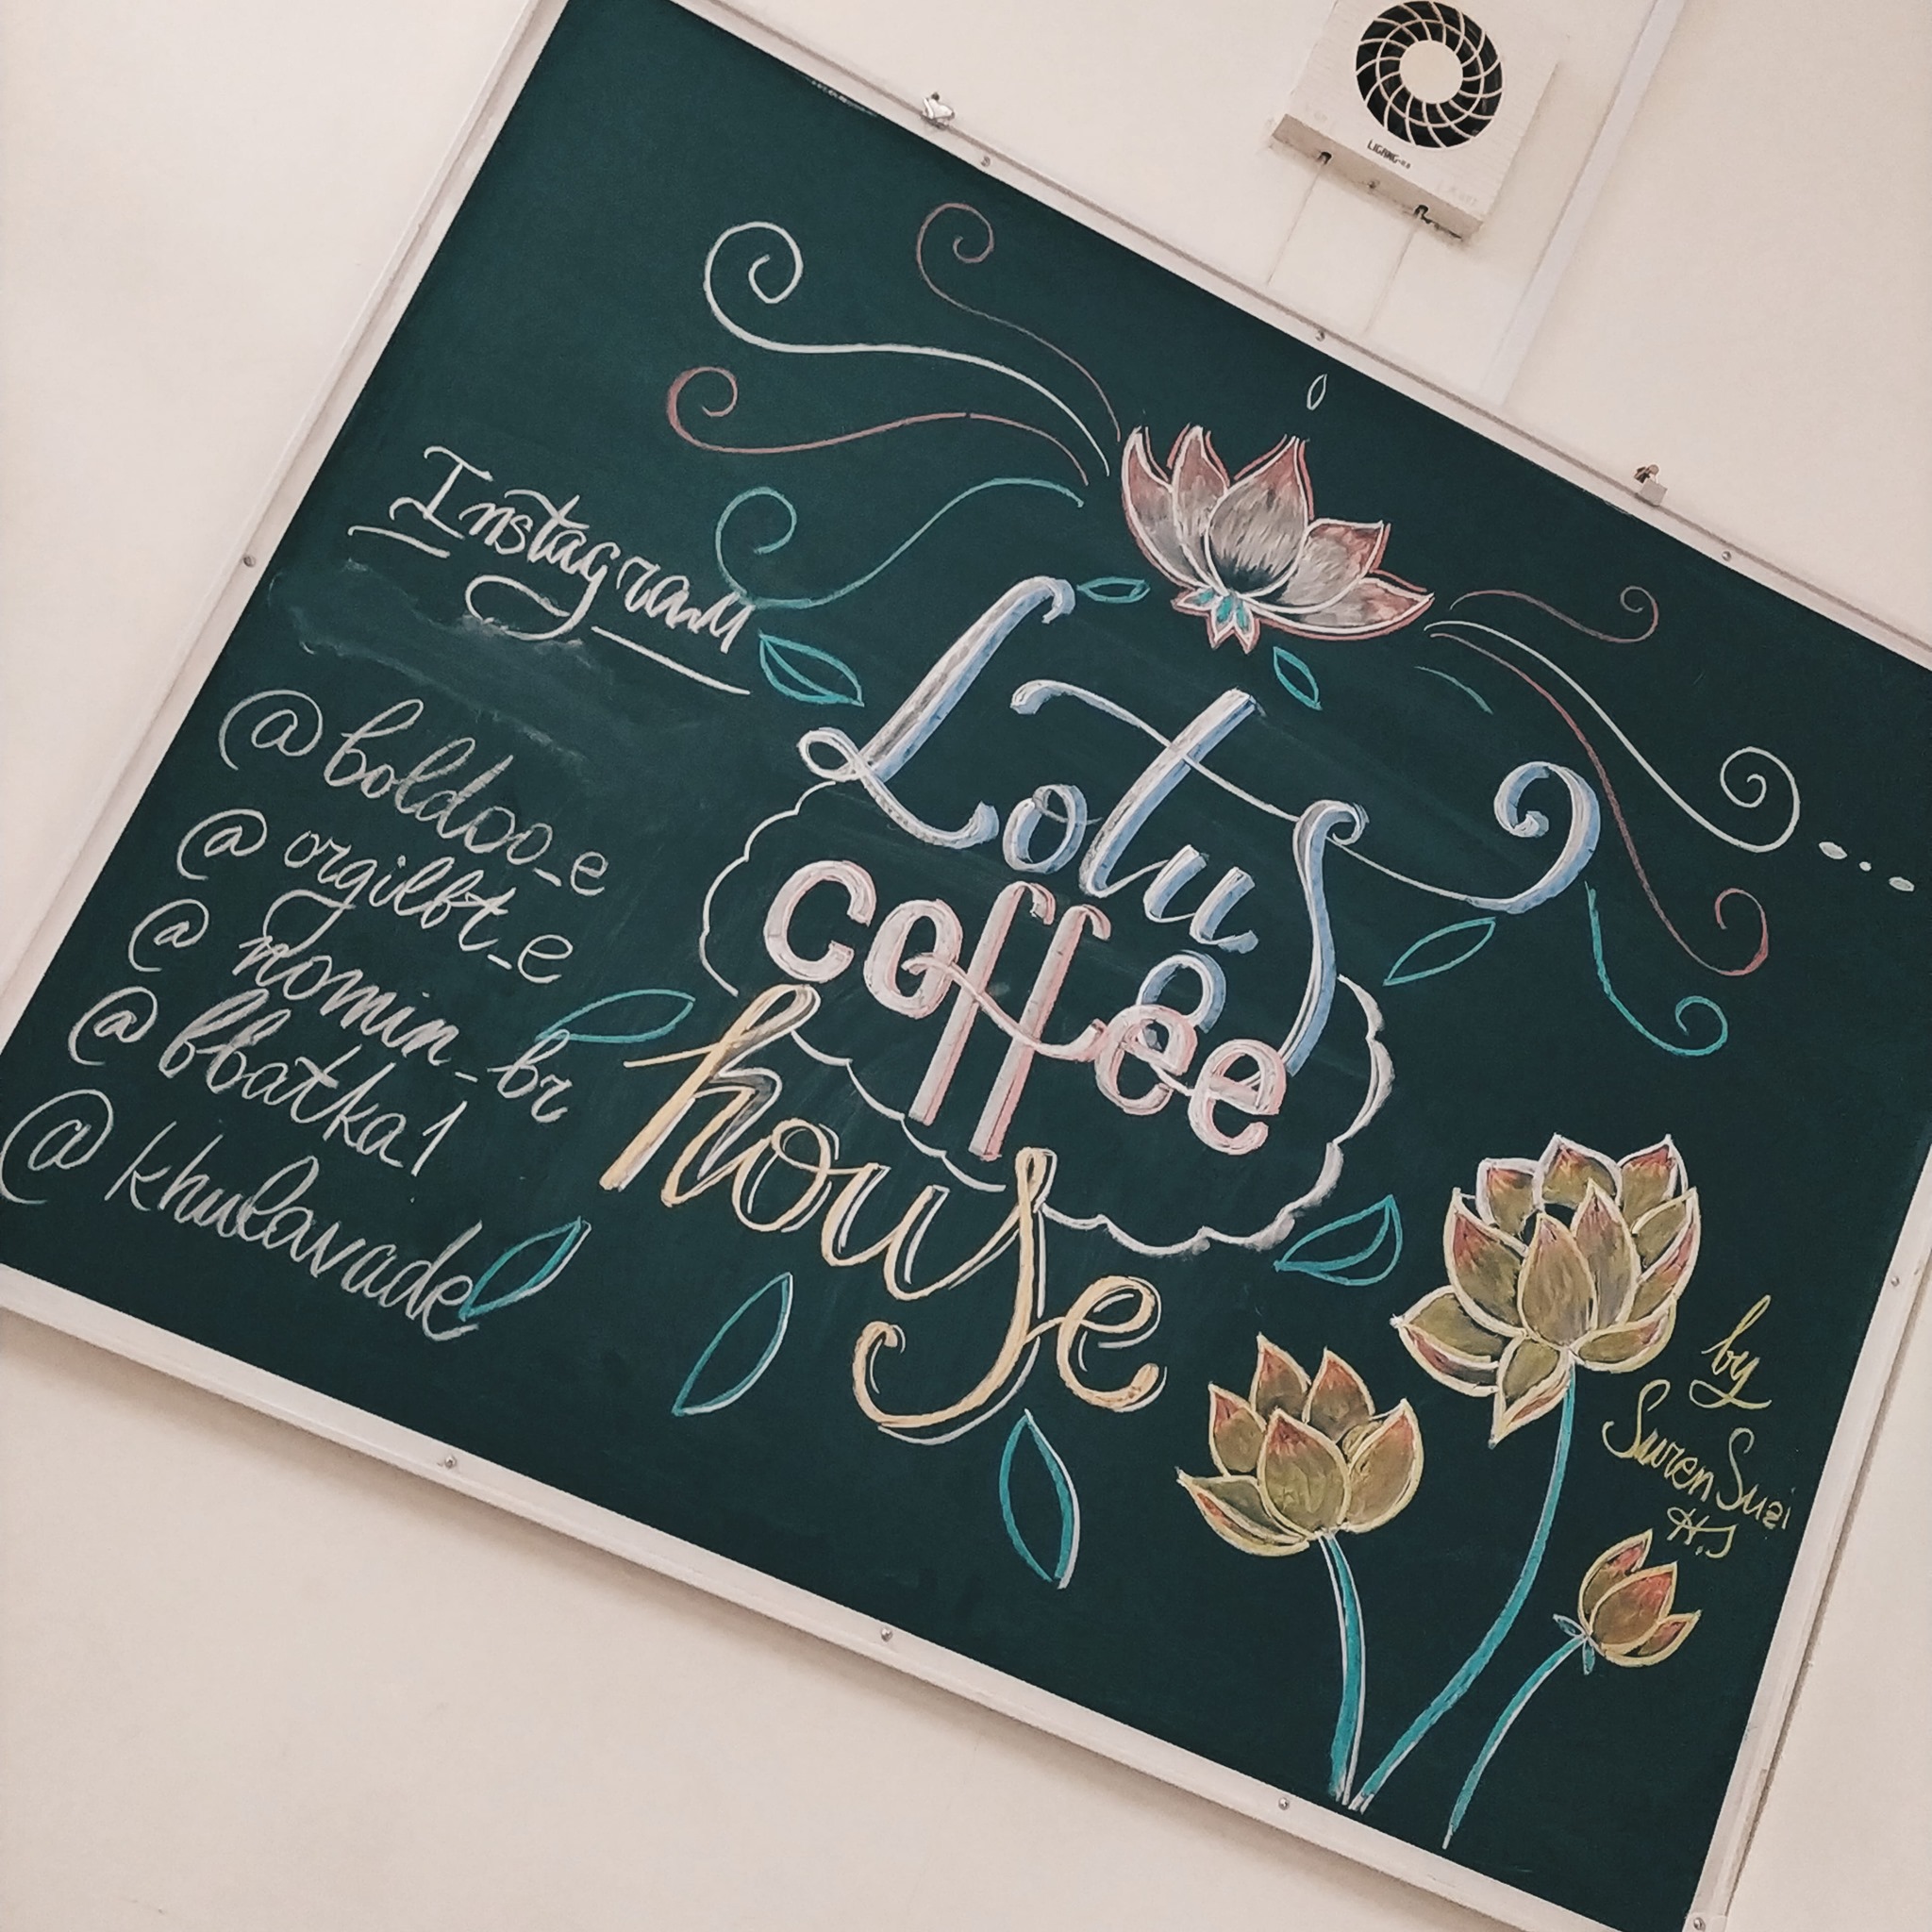 Instagram
@boldoo_e
@orgilbt_e
@nomin_br
@bbatka1
@khulavade
Lotus
coffee
house
by
Suren Suzi
H.S
LIGANG